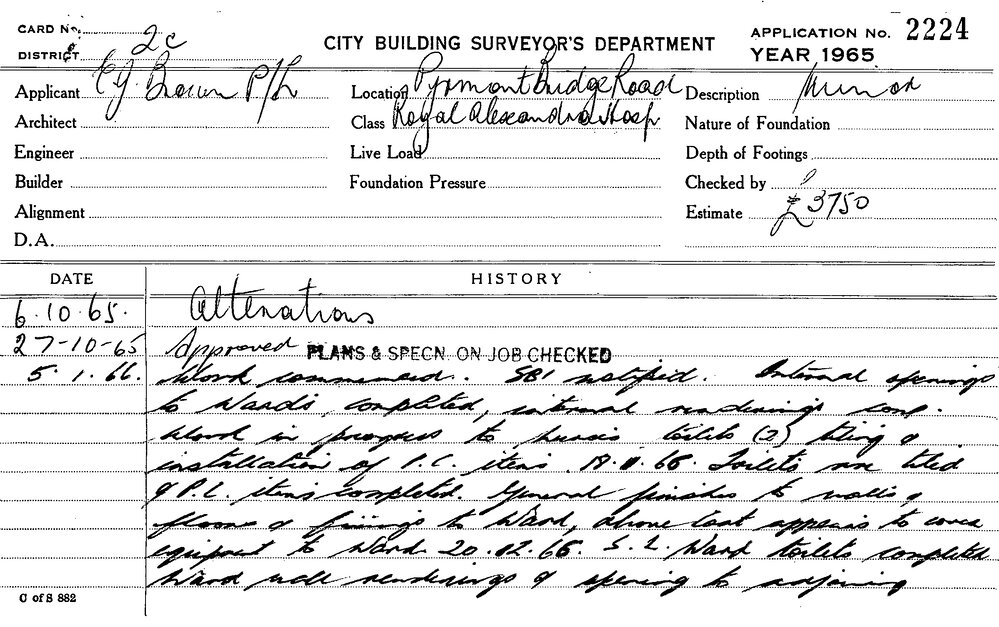 CARD No. 2c
DISTRICT
CITY BUILDING SURVEYOR'S DEPARTMENT
APPLICATION No. 2224
YEAR 1965
Applicant E.J. Brown P/L
Location Pyrmont Bridge Road
Description Minor
Architect
Class Royal Alexandra Hosp
Nature of Foundation
Engineer
Live Load
Depth of Footings
Builder
Foundation Pressure
Checked by
Alignment
Estimate £3750
D.A.
DATE
HISTORY
6.10.65. Alterations
27-10-65 Approved PLANS & SPECN. ON JOB CHECKED
5.1.66. Work commenced. SBI notified. Internal openings
to Wards, completed, internal renderings comp.
Work in progress to toilets (2) tiling &
installation of P.C. items. Toilets now tiled
& P.C. items completed. General finishes to walls &
floors & to Ward, above last appears to cover
to Ward. Ward toilets completed
Ward wall renderings & opening to adjoining
C of S 882